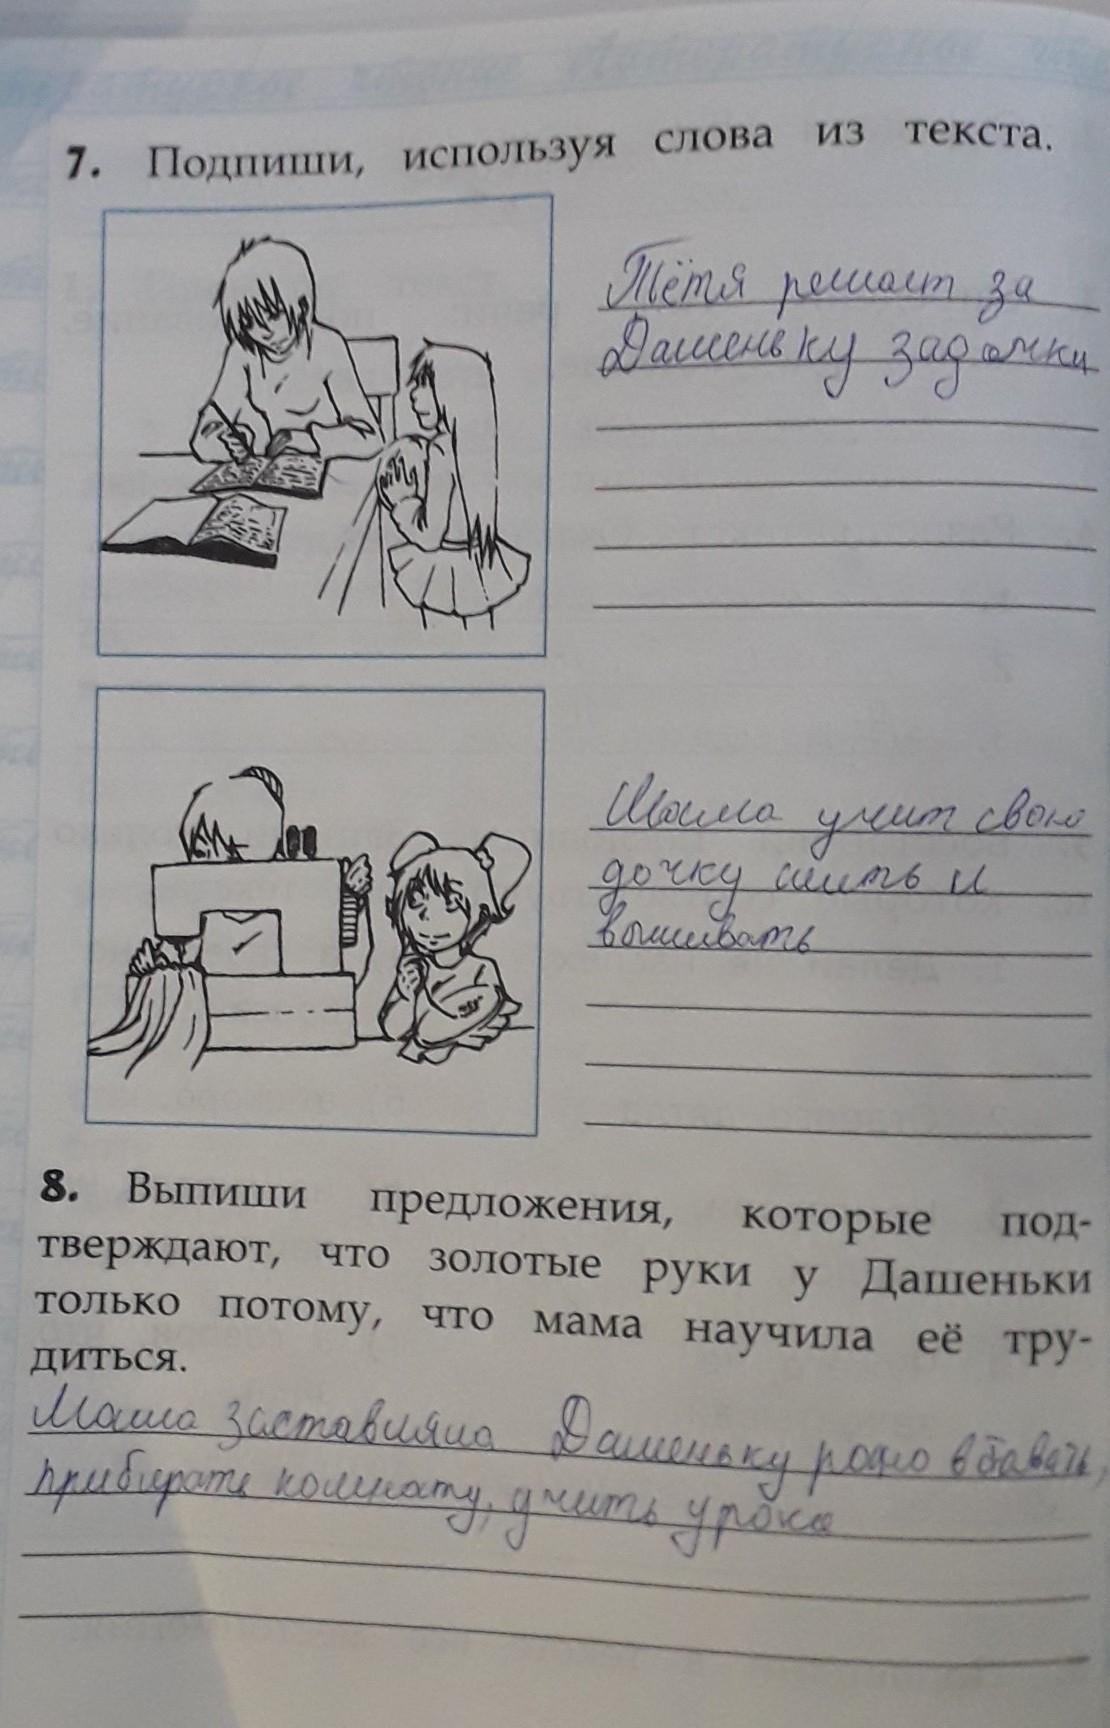 7. Подпиши, используя слова из текста.
Тётя решает за
Дашеньку задачки
Мама учит свою
дочку шить и
вышивать
8. Выпиши предложения, которые под-
тверждают, что золотые руки у Дашеньки
только потому, что мама научила её тру-
диться.
Мама заставляла Дашеньку рано вставать,
прибирать комнату, учить уроки